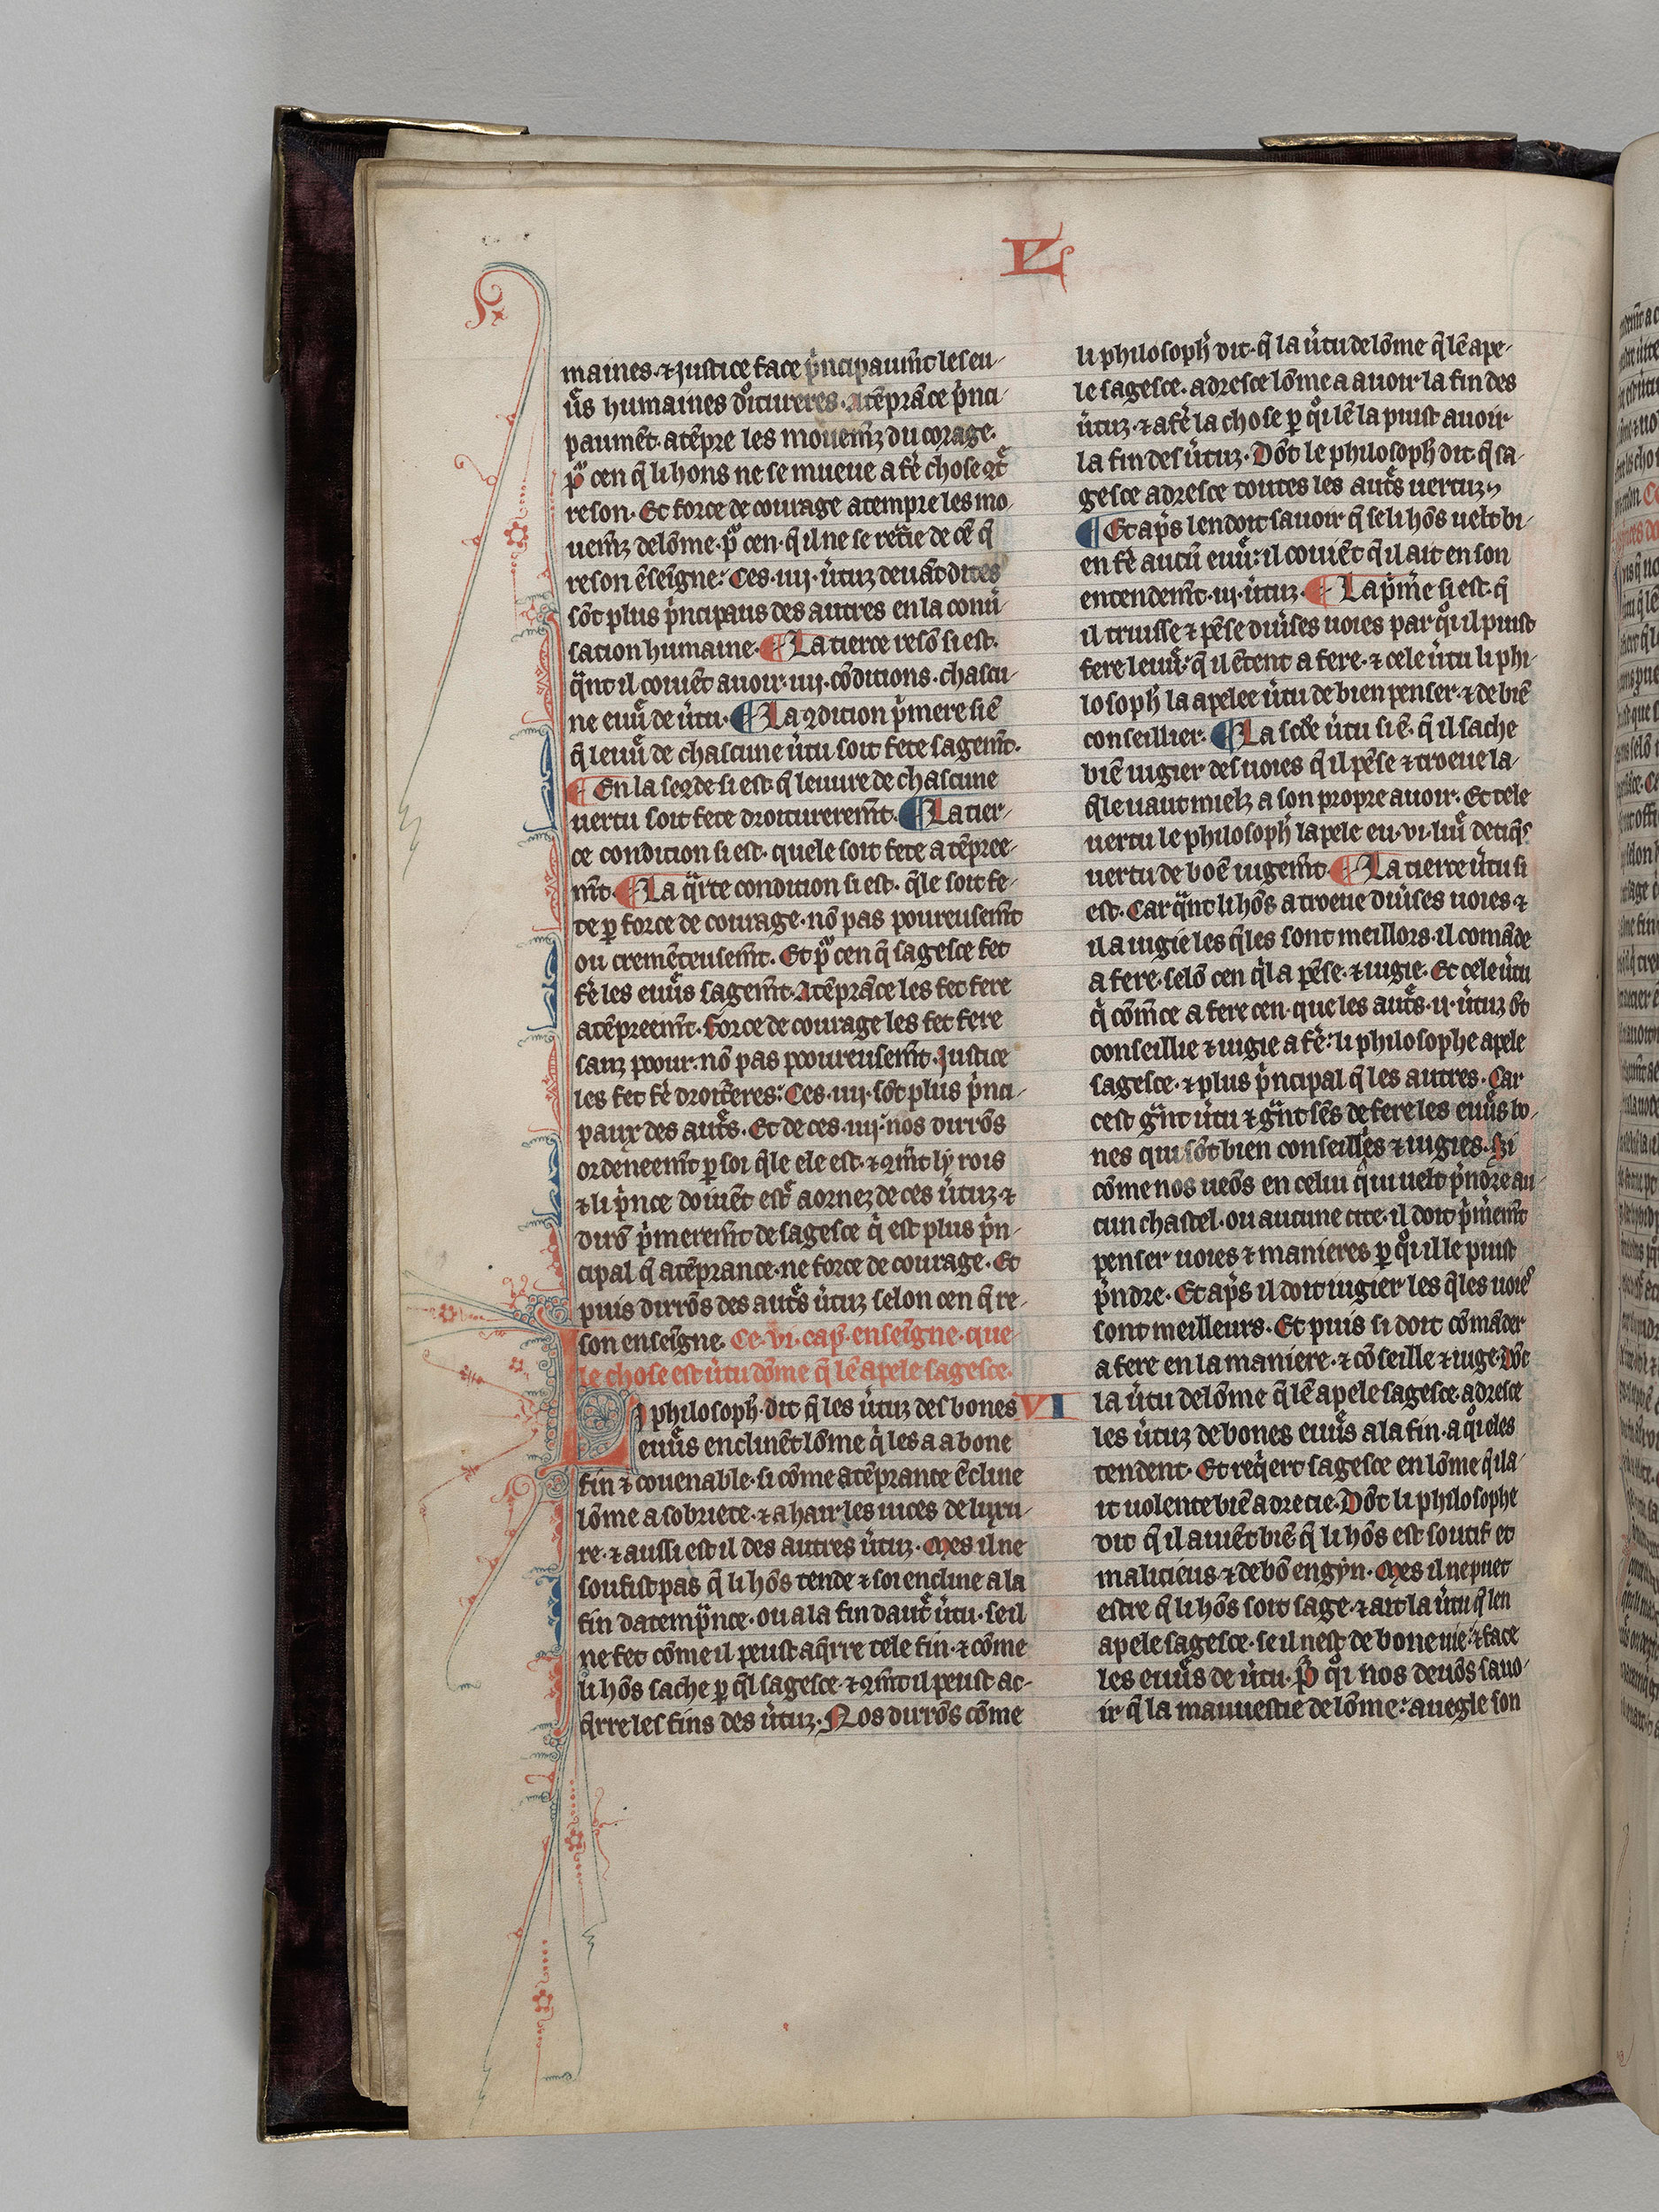 L
maines ⁊ justice face p̾ncipaum̄t les eu-
ur̾s humaines do̾itureres. Atēprāce p̾nci-
paumēt atēpre les mouem̄z du corage.
po̾ cen q̄ li hons ne se mueue a fe̾ chose ꝯt̾
reson. Et force de courage atempre les mo-
uem̄z delōme. po̾ cen. q̄ il ne se ret̾ie de cē q̄
reson ēseīgne: Ces .iiij. u̾tuz deuāt dites
sōt plus p̾ncipaus des autres en la conu̾-
sation humaine. ¶ La tierce resō si est.
qn̾t il couiēt auoir .iiij. cōditions. chascu-
ne euur̾ de u̾tu. ¶ La ꝯdition p̾mere si ē
q̄ leuur̾ de chascune u̾tu soit fete sagem̄t.
¶ En la segōde si est. q̄ leuure de chascune
uertu soit fete droitureremt̄. ¶ La tier-
ce condition si est. quele soit fete atēpree-
mt̄. ¶ La qr̾te condition si est. q̄le soit fe-
te ꝑ force de courage. nō pas poureusem̄t
ou cremēteusem̄t. Et po̾ cen q̄ sagesce fet
fe̾ les euur̾s sagem̄t. Atēprāce les fet fere
atēpreem̄t. Force de courage les fet fere
sanz poour. nō pas pooureusem̄t. Justice
les fet fe̾ droit̾eres: Ces .iiij. sōt plus p̾nci-
paux des aut̾s. Et de ces .iiij. nos dirrōs
ordeneem̄t ꝑ soi q̄le ele est. ⁊ ꝯm̄t ly rois
⁊ li p̾nce doiuēt est̾ aornez de ces u̾tuz. ⁊
dirō p̾merem̄t de sagesce q̾ est plus p̾n-
cipal q̄ atēprance. ne force de courage. Et
puis dirrōs des aut̾s u̾tuz selon cen q̄ re-
son enseīgne. Ce .vi. cap̾. enseīgne. que-
le chose est u̾tu dōme q̄ lē apele sagesce.
Li philosoph̾. dit q̄ les u̾tuz des bones VI
euur̾s enclinēt lōme q̾ les a a bone
fin ⁊ couenable. si cōme atēprante ēcline
lōme a sobriete. ⁊ a hair les uices de luxu-
re. ⁊ aussi est il des autres u̾tuz. Mes il ne
soufist pas q̄ li hōs tende ⁊ soi encline a la
fin datempn̾ce. ou a la fin daut̾ u̾tu. seil
ne fet cōme il peust aq̄rre tele fin. ⁊ cōme
li hōs sache ꝑ q̄l sagesce. ⁊ ꝯm̄t il peust ac-
q̄rre les fins des u̾tuz. Nos dirōs cōme
li philosoph̾ dit. q̄ la u̾tu delōme q̄ lē ape-
le sagesce. adresce lōme a auoir la fin des
u̾tuz. ⁊ a fe̾ la chose ꝑ qo̾i lē la puist auoir
la fin des u̾tuz. Dōt le philosoph̾ dit q̄ sa-
gesce adresce toutes les aut̾s uertuz.
¶ Et ap̾s len doit sauoir q̄ se li hōs uelt bi-
en fe̾ aucū euur̾: il couiēt q̄ il ait en son
entendem̄t .iij. u̾tuz. ¶ La p̾m̾e si est. q̄
il truisse ⁊ pēse diu̾ses uoies par qo̾i il puist
fere leuur̾. q̄ il ētent a fere. ⁊ cele u̾tu li phi-
losoph̾ la apelee u̾tu de bien penser. ⁊ de biē
conseillier. ¶ La scd̾e u̾tu si ē. q̄ il sache
biē iugier des uoies q̄ il pēse ⁊ troeue la-
q̄le uaut mielz a son propre auoir. Et cele
uertu le philosoph̾ lapele eu .vi. liur̾ detiq̄s
uertu de boē iugem̄t. ¶ La tierce u̾tu si
est. Car qn̾t li hōs a troeue diu̾ses uoies ⁊
il a iugie les q̄les sont meillors. il comāde
a fere. selō cen q̾l a pēse. ⁊ iugie. Et cele u̾tu
q̾ cōm̄ce a fere cen. que les aut̾s .ij. u̾tuz ōt
conseillie ⁊ iugie a fe̾: li philosophe apele
sagesce. ⁊ plus p̾ncipal q̄ les autres. Car
cest gn̾t u̾tu ⁊ gn̾t sēs de fere les euur̾s bo-
nes qui sōt bien conseillēs ⁊ iugies. Si
cōme nos ueōs en celui q̾ uelt p̾ndre au-
cun chastel. ou aucune cite. il doit p̾mem̄t
penser uoies ⁊ manieres ꝑ qo̾i il le puist
p̾ndre. Et ap̾s il doit iugier les q̄les uoies
sont meilleurs. Et puis si doit cōmāder
a fere en la maniere. ⁊ cōseille ⁊ iuge. Dōt
la u̾tu delōme q̄ lē apele sagesce. adresce
les u̾tuz de bones euur̾s a la fin. a qo̾i eles
tendent. Et req̾ert sagesce en lōme q̄ il a-
it uolente biē adrecie. Dōt li philosophe
dit q̄ il auiēt biē q̄ li hōs est soutif et
malicieus ⁊ de bō engyn. Mes il ne puet
estre q̄ li hōs soit sage. ⁊ ait la u̾tu q̄ len
apele sagesce. se il nest de bone uie. ⁊ face
les euur̾s de u̾tu. Po̾ qo̾i nos deuōs sauo-
ir q̄ la mauuestie de lōme: auegle son